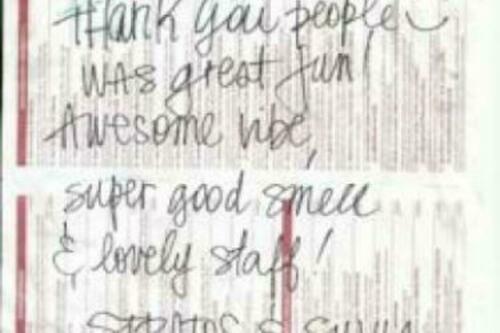 thank you people
was great fun!
Awesome vibe,
super good smell
& lovely staff!